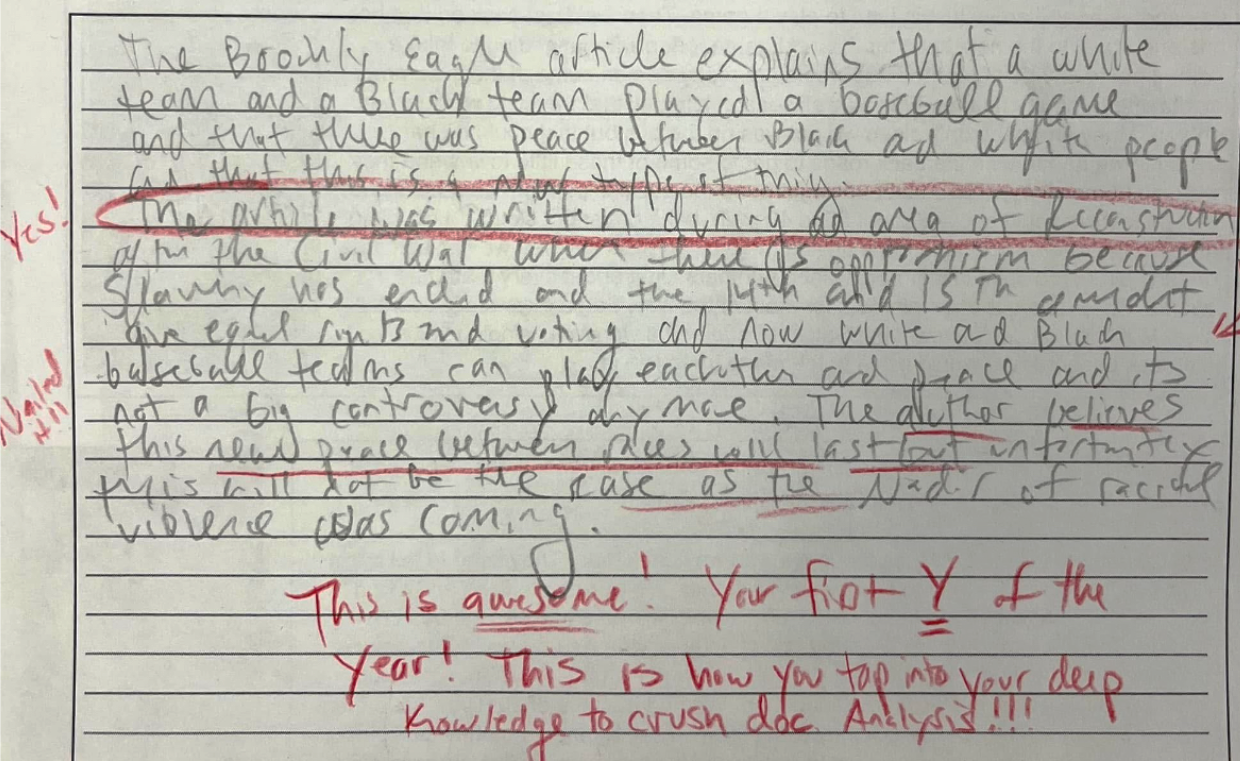 The Brookly Eagle article explains that a white
team and a Black team played a baseball game
and that there was peace between Black ad white people
and that this is a new type of thing.
Yes!
The article was written during an area of Reconstruction
after the Civil War when there is optimism because
Slavery has ended and the 14th and 15th amendment
give equal rights and voting and now white and Black
Nailed it!!
baseball teams can play eachother and peace and its
not a big controversy anymore. The author believes
this new peace between races will last but unfortunately
this will not be the case as the Nadir of racial
violence was coming.
This is awesome! Your first Y of the
Year! This is how you tap into your deep
Knowledge to crush doc. Analysis!!!